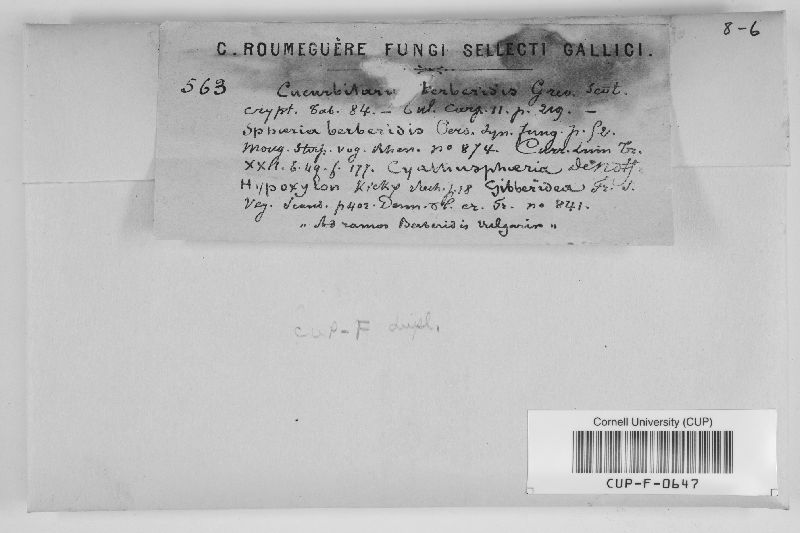 8-6
C. ROUMEGUÈRE FUNGI SELLECTI GALLICI.
563 Cucurbitaria berberidis Grev. Scot.
crypt. Tab. 84. — Tul. Carp. II. p. 219. —
Sphæria berberidis Pers. Syn. fung. p. 52.
Moug. Stop. vog. Rhen. no 874. Curr. Linn Tr.
f. 177. Cyathisphæria de Nott.
Hypoxylon Kickx p. 18 Gibberidea Fr. S.
Veg. Scand. p 402. Desm. Pl. cr. Fr. no 841.
„ Ad ramos Berberidis vulgaris „
CUP-F dupl.
Cornell University (CUP)
CUP-F-0647